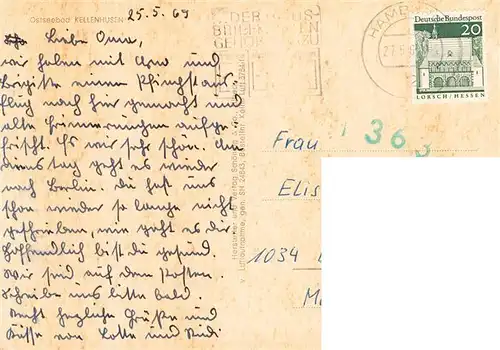 Ostseebad KELLENHUSEN
25.5.69
Liebe Oma,
wir haben mit Arno und
Brigitte einen Pfingstaus-
flug nach hier gemacht und
alte Erinnerungen aufge-
frischt. Es war sehr schön. Am
Dienstag geht es wieder
nach Berlin. Du hast uns
schon wieder so lange nicht
geschrieben, wie geht es dir
Hoffentlich bist du gesund.
Wir sind auf dem Posten.
Schreibe uns bitte bald.
Recht herzliche Grüße und
Küsse von Lotte und Rudi
HAMB
Deutsche Bundespost
20
LORSCH / HESSEN
363
Frau
Elis
1034